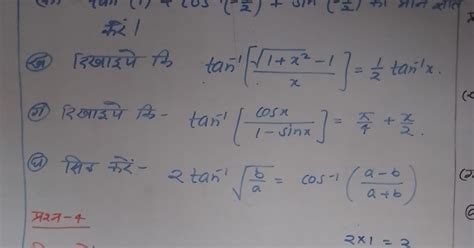 tan⁻¹(1) + cos⁻¹(-1/2) + sin⁻¹(-1/2) का मान ज्ञात
करें।
(ख) दिखाइये कि tan⁻¹[(√(1+x²) - 1)/x] = 1/2 tan⁻¹x.
(ग) दिखाइये कि- tan⁻¹[cosx/(1-sinx)] = π/4 + x/2.
(घ) सिद्ध करें- 2tan⁻¹√(b/a) = cos⁻¹((a-b)/(a+b))
प्रश्न-4
2x1 = 2